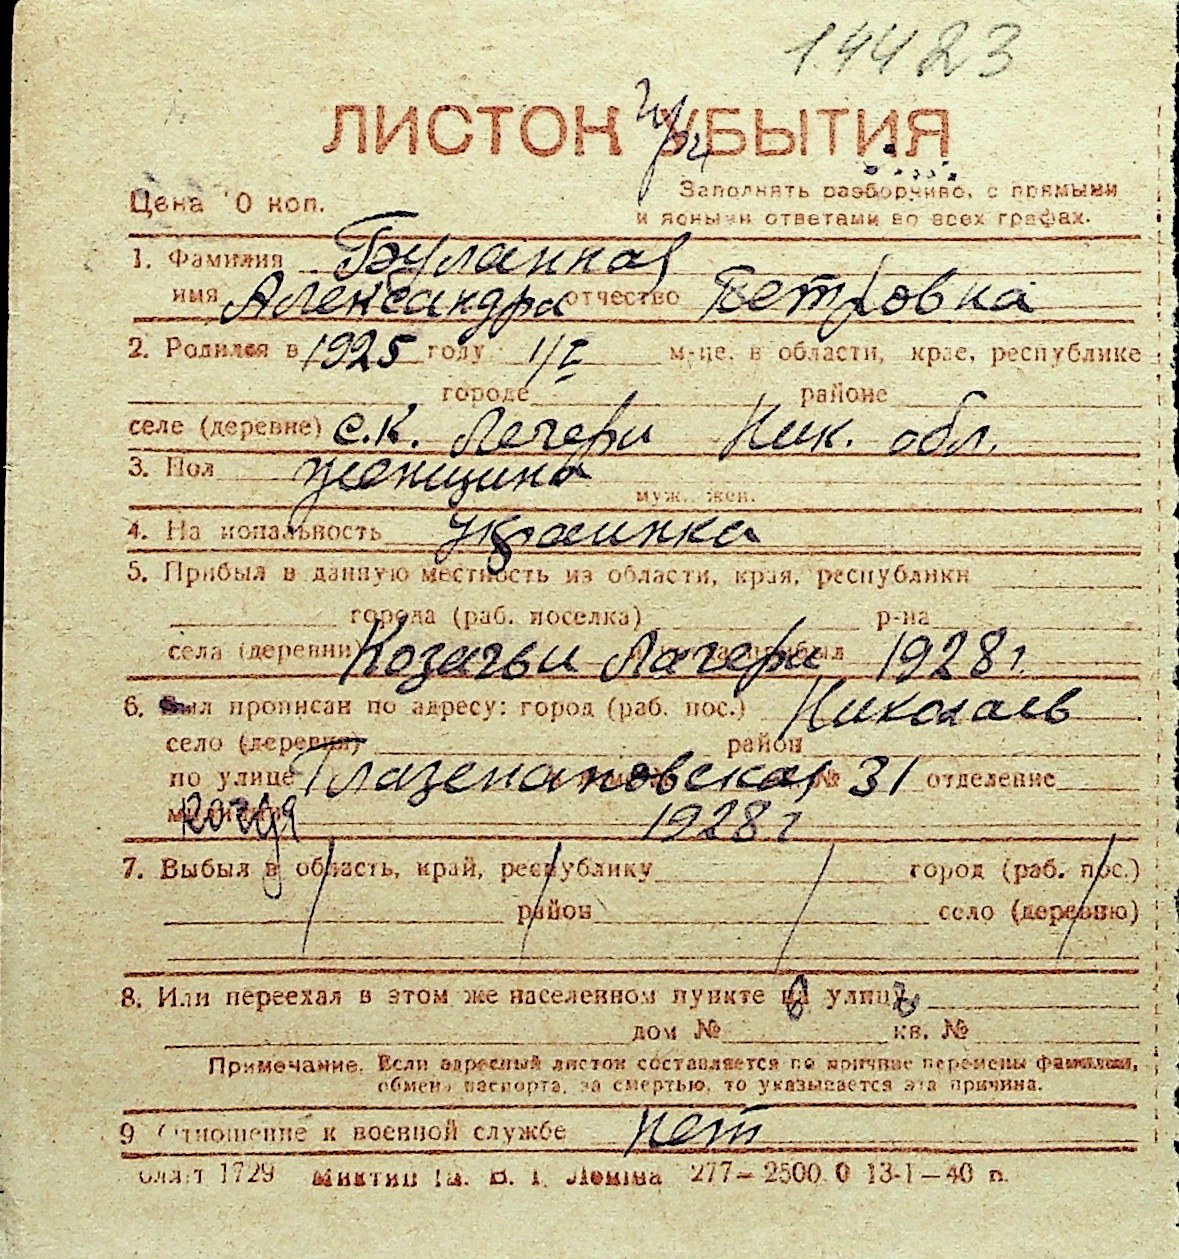 14423
ЛИСТОК УБЫТИЯ
при
Цена 10 коп.
Заполнять разборчиво, с прямыми
и ясными ответами во всех графах.
1. Фамилия Буланная
имя Александра отчество Петровна
2. Родился в 1925 году 1/I м-це, в области, крае, республике
городе районе
селе (деревне) с.К. Лагери Ник. обл.
3. Пол женщина
муж. жен.
4. Национальность украинка
5. Прибыл в данную местность из области, края, республики
города (раб. поселка) р-на
села (деревни) Козачьи Лагери прибыл 1928 г.
6. Был прописан по адресу: город (раб. пос.) Николаев
село (деревня) район
по улице Глазенаповская № 31 отделение
когда 1928 г
7. Выбыл в область, край, республику город (раб. пос.)
район село (деревню)
8. Или переехал в этом же населенном пункте на улицу
дом № кв. №
Примечание. Если адресный листок составляется по причине перемены фамилии,
обмена паспорта, за смертью, то указывается эта причина.
9 Отношение к военной службе нет
1729 В. І. Леніна 277—2500.0 13-I—40 п.